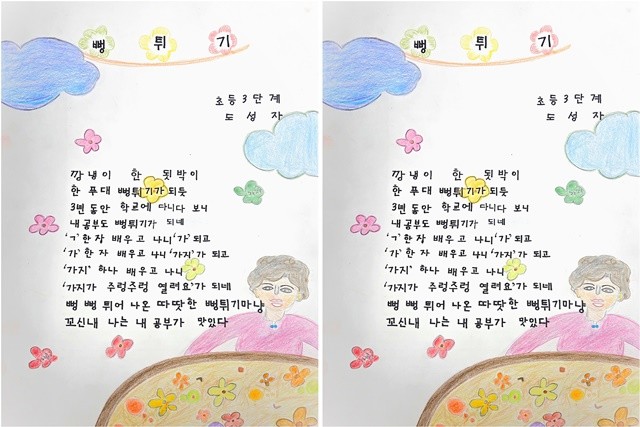 뻥 튀 기
초등 3 단계
도 성 자
깡냉이 한 됫박이
한 푸대 뻥튀기가 되듯
3년 동안 학교에 다니다 보니
내 공부도 뻥튀기가 되네
'ㄱ' 한 장 배우고 나니 '가' 되고
'가' 한 자 배우고 나니 '가지'가 되고
'가지' 하나 배우고 나니
'가지가 주렁주렁 열려요'가 되네
뻥 뻥 튀어 나온 따땃한 뻥튀기마냥
꼬신내 나는 내 공부가 맛있다
뻥 튀 기
초등 3 단계
도 성 자
깡냉이 한 됫박이
한 푸대 뻥튀기가 되듯
3년 동안 학교에 다니다 보니
내 공부도 뻥튀기가 되네
'ㄱ' 한 장 배우고 나니 '가' 되고
'가' 한 자 배우고 나니 '가지'가 되고
'가지' 하나 배우고 나니
'가지가 주렁주렁 열려요'가 되네
뻥 뻥 튀어 나온 따땃한 뻥튀기마냥
꼬신내 나는 내 공부가 맛있다